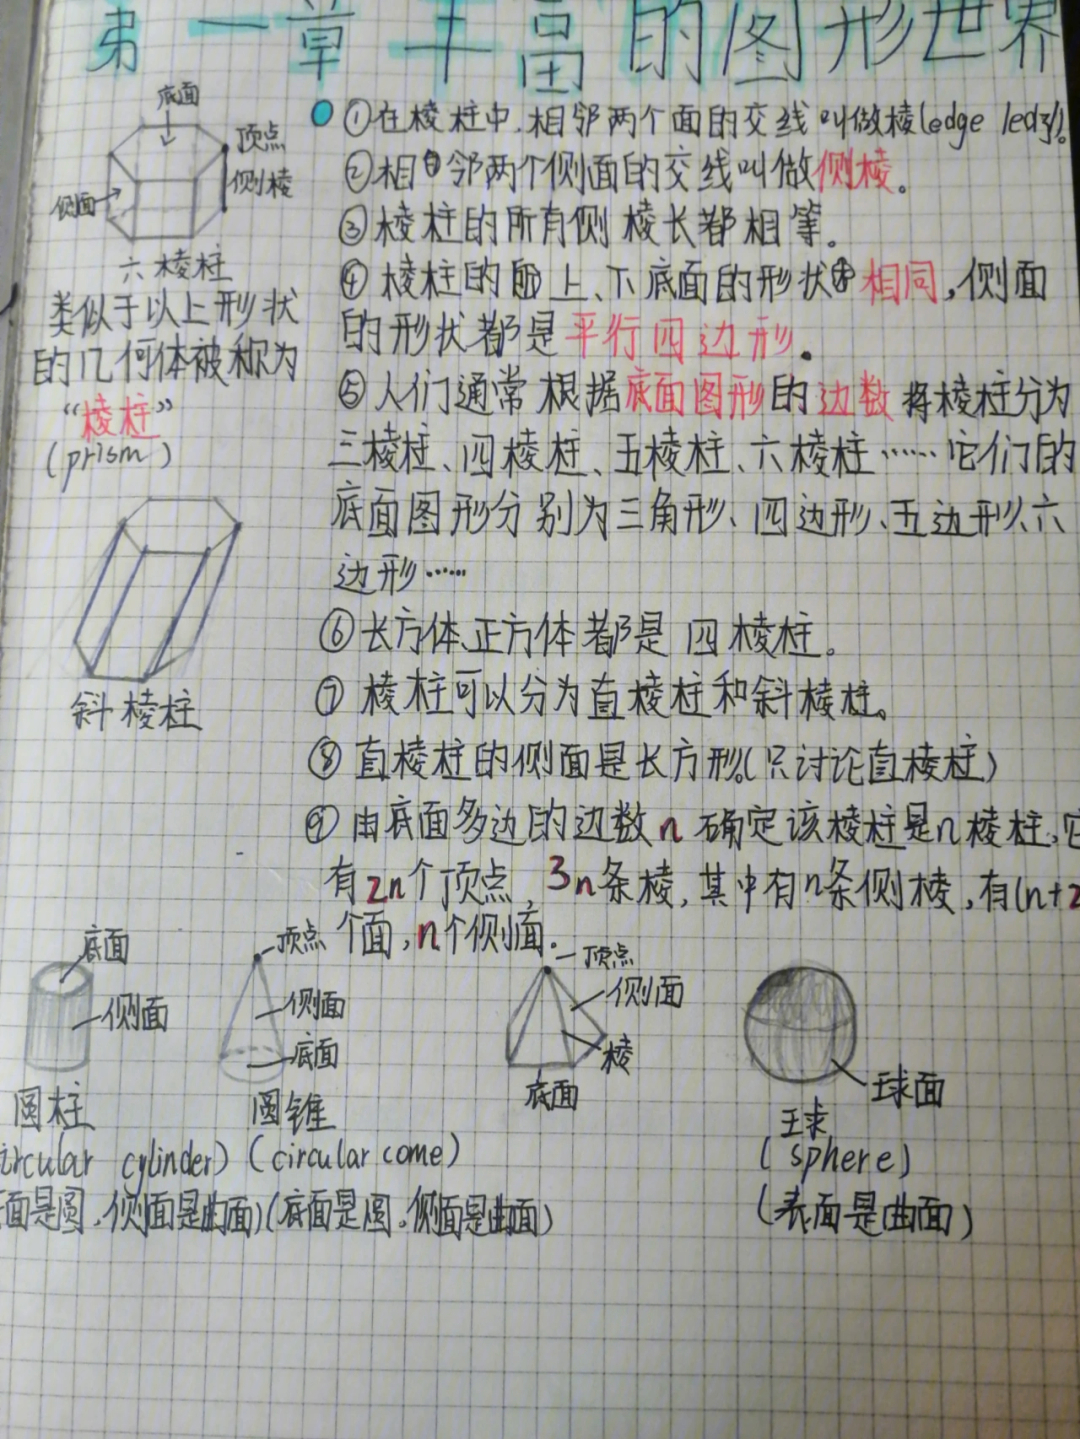 第一章丰富的图形世界
底面
顶点
侧棱
侧面
六棱柱
类似于以上形状
的几何体被称为
“棱柱”
(prism)
斜棱柱
①在棱柱中,相邻两个面的交线叫做棱(edge
②相邻两个侧面的交线叫做侧棱。
③棱柱的所有侧棱长都相等。
④棱柱的上、下底面的形状相同,侧面
的形状都是平行四边形。
⑤人们通常根据底面图形的边数将棱柱分为
三棱柱、四棱柱、五棱柱、六棱柱……它们的
底面图形分别为三角形、四边形、五边形、六
边形……
⑥长方体、正方体都是四棱柱。
⑦棱柱可以分为直棱柱和斜棱柱。
⑧直棱柱的侧面是长方形。(只讨论直棱柱)
⑨由底面多边的边数n确定该棱柱是n棱柱,它
有2n个顶点,3n条棱,其中有n条侧棱,有(n+2
个面,n个侧面.
底面
侧面
圆柱
ircular cylinder)
面是圆,侧面是曲面)
顶点
侧面
底面
圆锥
(circular come)
(底面是圆。侧面是曲面)
顶点
侧面
棱
底面
球面
球
(sphere)
(表面是曲面)